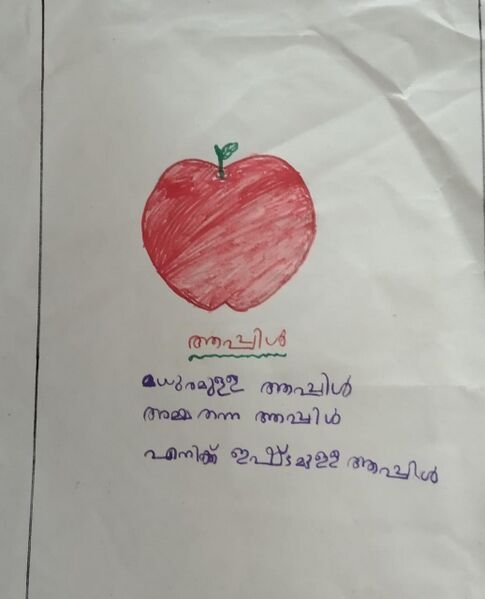 ആപ്പിൾ
മധുരമുള്ള ആപ്പിൾ
അമ്മ തന്ന ആപ്പിൾ
എനിക്ക് ഇഷ്ടമുള്ള ആപ്പിൾ